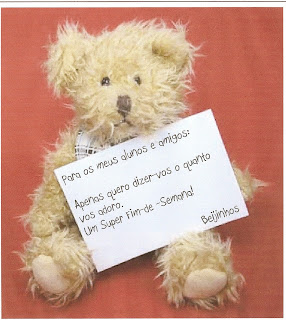 Para os meus alunos e amigos:
Apenas quero dizer-vos o quanto
vos adoro.
Um Super Fim-de -Semana!
Beijinhos